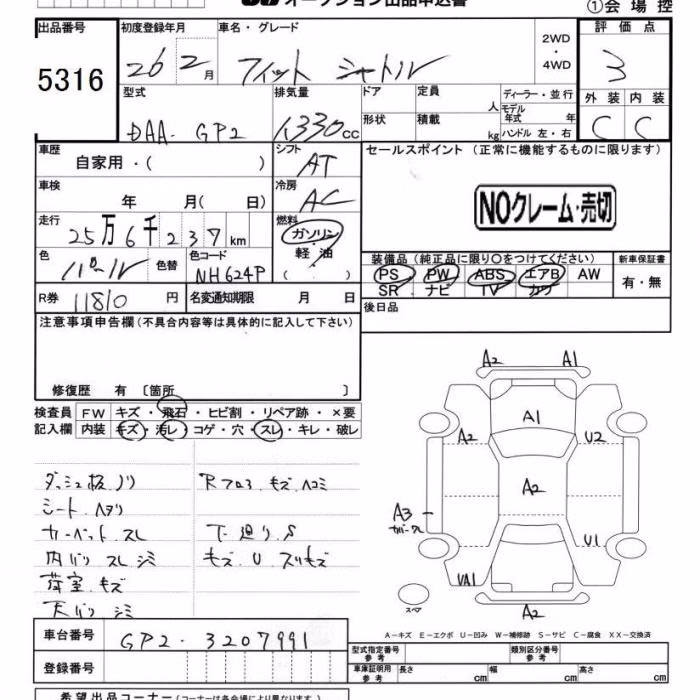 オークション出品申込書
①会場控
出品番号
5316
初度登録年月
26 2月
車名・グレード
フィット シャトル
2WD・4WD
評価点
3
外装 内装
C C
型式
DAA-GP2
排気量
1330cc
ドア
形状
定員 人
積載 kg
ディーラー・並行
モデル年式 年
ハンドル 左・右
車歴
自家用・( )
シフト
AT
セールスポイント (正常に機能するものに限ります)
NOクレーム・売切
車検
年 月( 日)
冷房
AC
走行
25万6千237km
燃料
ガソリン
軽・油
( )
色
パール
色替
色コード
NH624P
装備品 (純正品に限り○をつけてください)
PS PW ABS エアB AW
SR ナビ TV カワ
新車保証書
有・無
R券 11810 円
名変通知期限 月 日
後日品
注意事項申告欄 (不具合内容等は具体的に記入して下さい)
修復歴 有 〔箇所 〕
検査員記入欄
FW キズ・飛石・ヒビ割・リペア跡・×要
内装 キズ・汚レ・コゲ・穴・スレ・キレ・破レ
ダッシュ板ノリ
シート ヘタリ
カーペット スレ
内バリ スレ シミ
荷室 キズ
天バリ シミ
Rフロス キズ ヘコミ
下廻り S
キズ U スリキズ
A2 A1
A1
A2 U2
A2
A3
U1
UA1
A2
スペア
A-キズ E-エクボ U-凹み W-補修跡 S-サビ C-腐食 XX-交換済
車台番号
GP2-3207991
登録番号
型式指定番号 参考
類別区分番号 参考
車庫証明用 参考
長さ cm
幅 cm
高さ cm
希望出品コーナー (コーナーは各会場により異なります。)